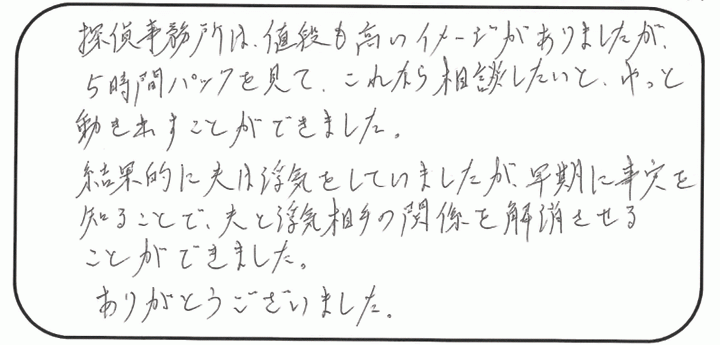 探偵事務所は、値段も高いイメージがありましたが、
5時間パックを見て、これなら相談したいと、やっと
動き出すことができました。
結果的に夫は浮気をしていましたが、早期に事実を
知ることで、夫と浮気相手の関係を解消させる
ことができました。
ありがとうございました。